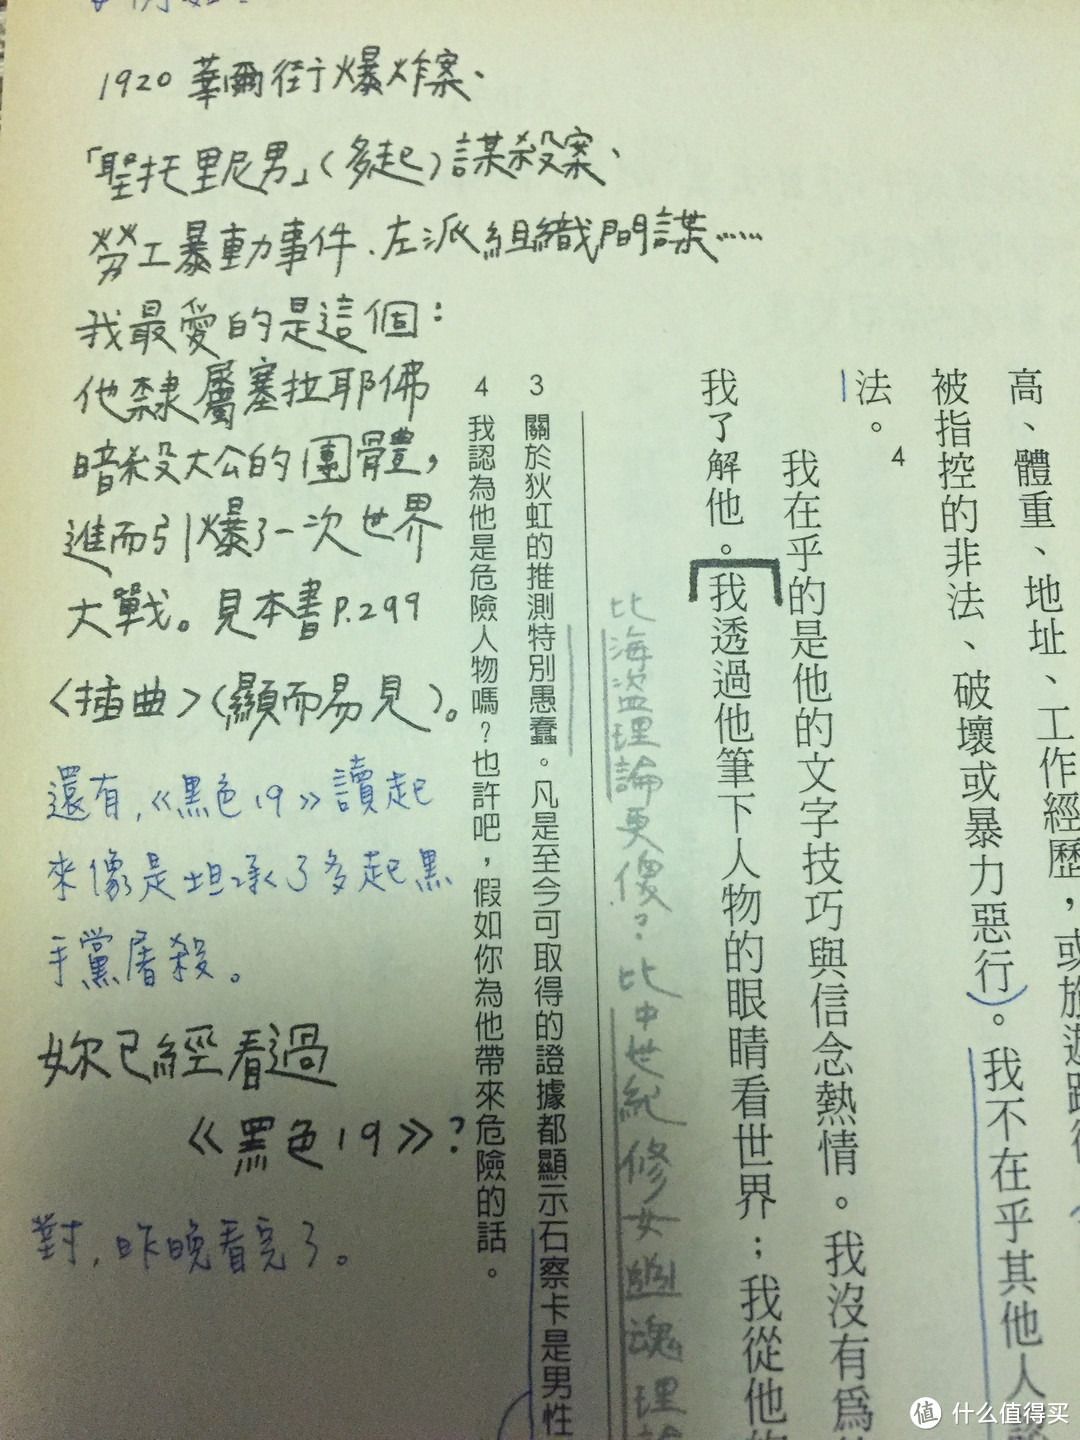 1920 華爾街爆炸案、
「聖托里尼男」(多起)謀殺案、
勞工暴動事件、左派組織間諜……
我最愛的是這個：
他隸屬塞拉耶佛
暗殺大公的團體，
進而引爆了一次世界
大戰。見本書P.299
〈插曲〉(顯而易見)。
還有,《黑色19》讀起
來像是坦承了多起黑
手黨屠殺。
妳已經看過
《黑色19》?
對,昨晚看完了。
高、體重、地址、工作經歷，或旅遊路
被指控的非法、破壞或暴力惡行)。我不在乎其他人
法。4
我在乎的是他的文字技巧與信念熱情。我沒有為
我了解他。我透過他筆下人物的眼睛看世界；我從他
比海盜理論更傻?比中世紀修女幽魂理論
3 關於狄虹的推測特別愚蠢。凡是至今可取得的證據都顯示石察卡是男性
4 我認為他是危險人物嗎？也許吧，假如你為他帶來危險的話。
值 什么值得买